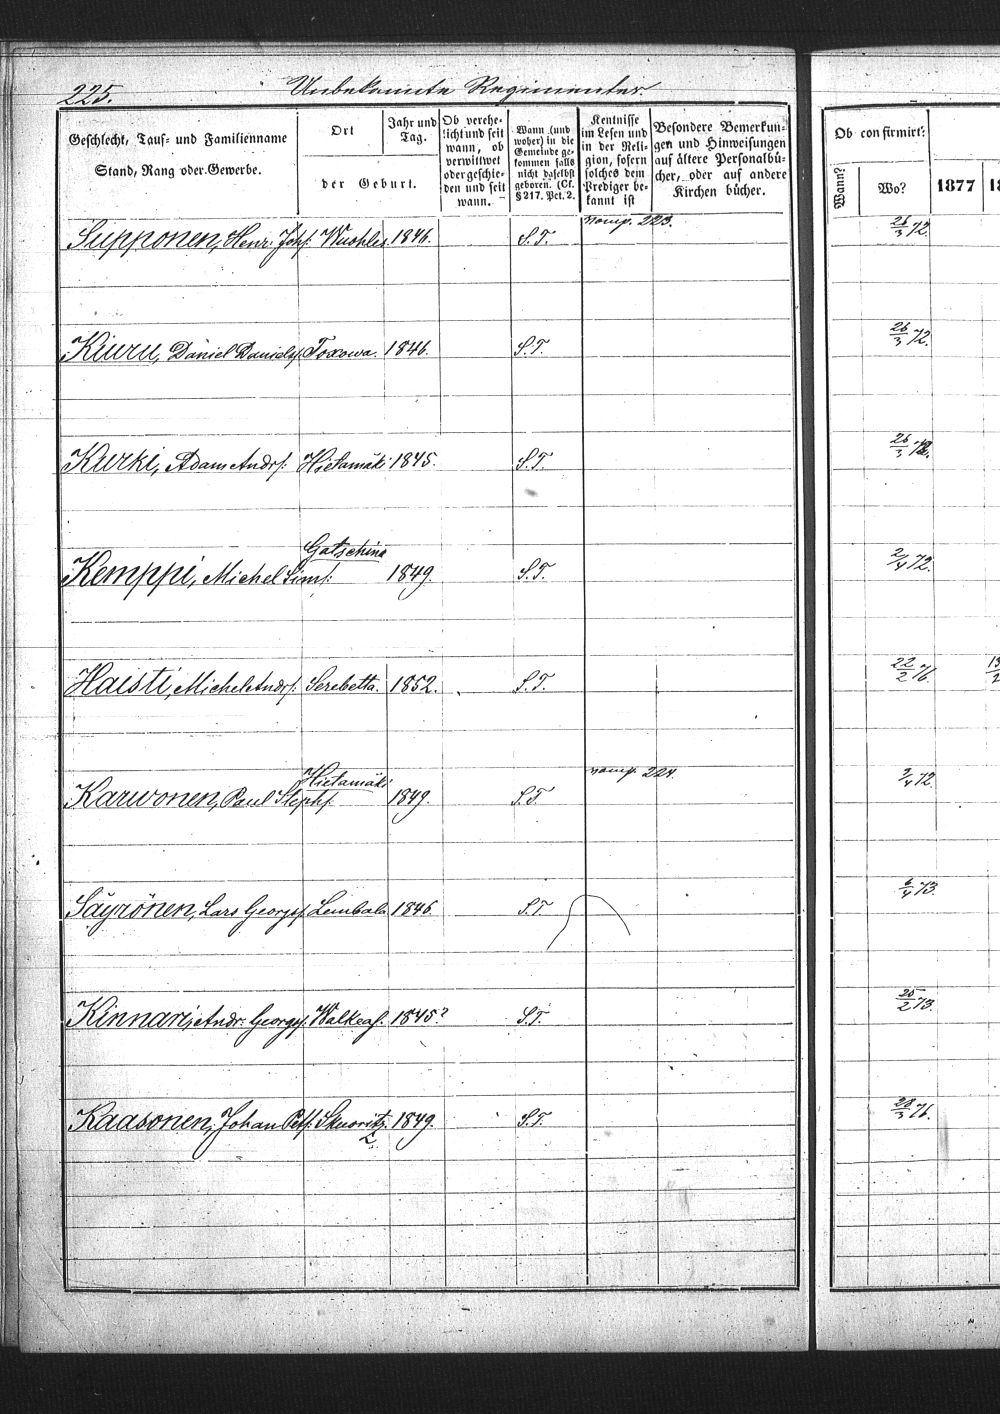 225. Unbekannte Regimenter.
Geschlecht, Tauf- und Familienname
Stand, Rang oder Gewerbe.
Ort
Jahr und
Tag.
der Geburt.
Ob verehe-
licht und seit
wann, ob
verwittwet
oder geschie-
den und seit
wann.
Wann (und
woher) in die
Gemeinde ge-
kommen falls
nicht daselbst
geboren. (Cf.
§ 217. Pct. 2.
Kentnisse
im Lesen und
in der Reli-
gion, sofern
solches dem
Prediger be-
kannt ist
Besondere Bemerkun-
gen und Hinweisungen
auf ältere Personalbü-
cher, oder auf andere
Kirchen bücher.
Ob confirmirt:
Wann?
Wo?
1877
Supponen, Henr. Johs. Wuohles 1846. S.T. 223. 26/3 72.
Kiuru, Daniel Daniels. Toxowa. 1846. S.T. 26/3 72.
Kurki, Adam Andrs. Hietamäki 1845. S.T. 26/3 72.
Kemppi, Michel Sims: Gatschina 1849. S.T. 2/4 72.
Haisti, Michel Andrs. Serebetta. 1852. S.T. 22/2 76.
Karwonen, Paul Stephs. Hietamäki 1849. S.T. 224. 2/4 72.
Säyrönen, Lars Georgs. Lembala 1846. S.T. 6/4 73.
Kinnari, Andr. Georgs. Walkeas. 1845? S.T. 25/2 73.
Kaasonen, Johan Pets. Skuoritz. 1849. S.T. 28/3 76.